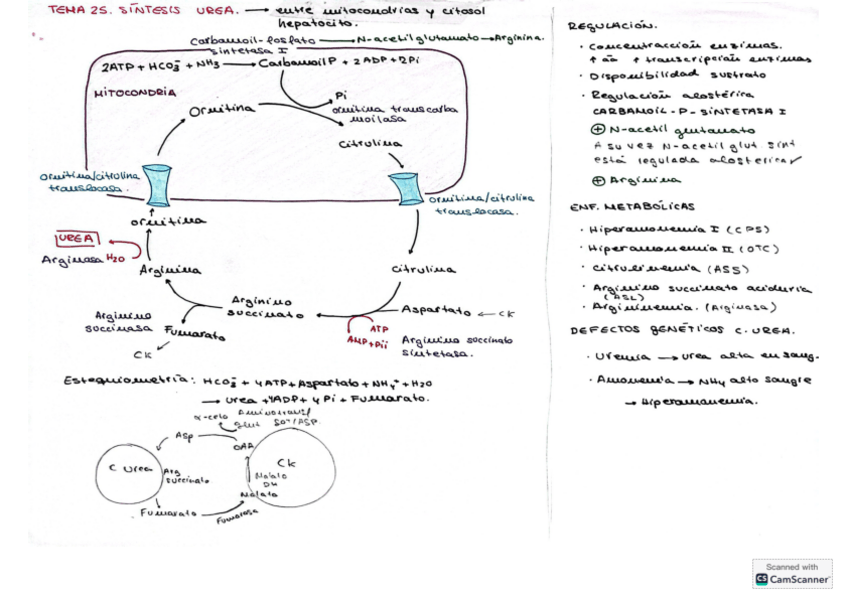 TEMA 25. SÍNTESIS UREA. → entre mitocondrias y citosol
hepatocito.
Carbamoil-fosfato → N-acetil glutamato → Arginina.
sintetasa I
2ATP + HCO3⁻ + NH3 → Carbamoil P + 2 ADP + 2Pi
MITOCONDRIA
Pi
Ornitina
ornitina transcarba
moilasa
Citrulina
Ornitina/citrulina
translocasa.
Ornitina/citrulina
translocasa.
Ornitina
UREA
Arginasa H2O
Arginina
Citrulina
Arginino
succinato
Aspartato ← CK
Arginino
succinasa
Fumarato
CK
ATP
AMP+PPi
Arginino succinato
sintetasa.
Estequiometría: HCO3⁻ + 4ATP + Aspartato + NH4⁺ + H2O
→ Urea + 4ADP + 4Pi + Fumarato.
α-ceto
glut
Aminotransf
Asp
OAA
C Urea
Arg
succinato
CK
Malato
DH
Malato
Fumarato
Fumarasa
REGULACIÓN.
· Concentracción enzimas.
↑ aa ↑ transcripción enzimas
· Disponibilidad sustrato
· Regulación alostérica
CARBAMOIL-P-SINTETASA I
⊕ N-acetil glutamato
A su vez N-acetil glut sint
está regulada alosterica
⊕ Arginina
ENF. METABÓLICAS
· Hiperamonemia I (CPS)
· Hiperamonemia II (OTC)
· Citrulinemia (ASS)
· Arginino succinato aciduria
(ASL)
· Argininemia. (Arginasa)
DEFECTOS GENÉTICOS C. UREA.
· Uremia → urea alta en sang.
· Amonemia → NH4 alto sangre
→ Hiperamonemia.
Scanned with
CS CamScanner